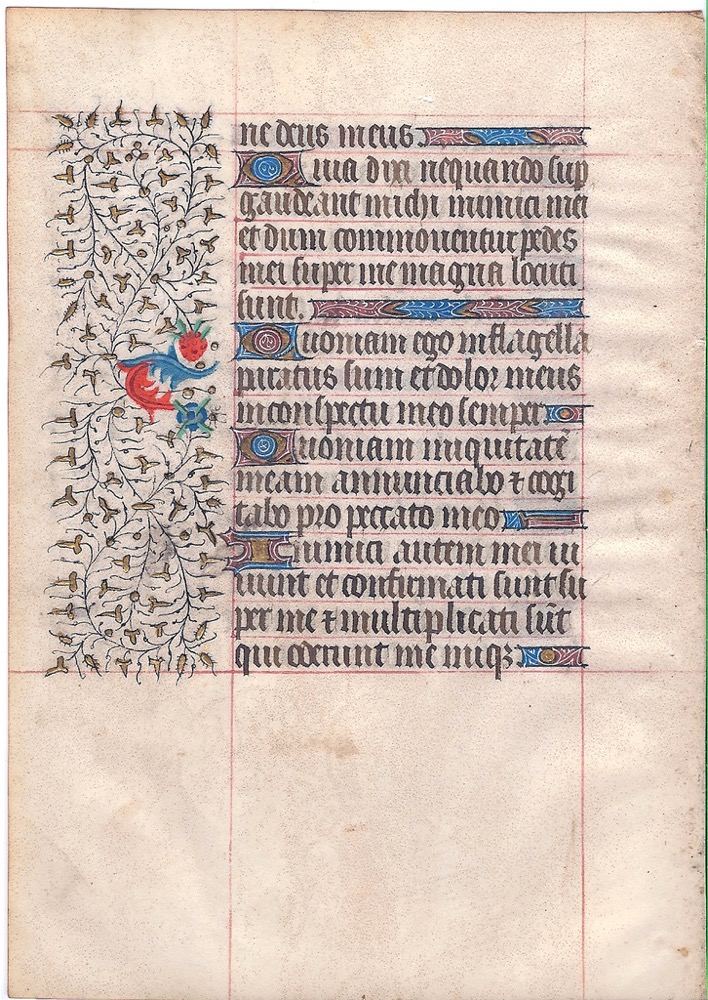 ne deus meus.
Quia dixi nequando sup
gaudeant michi inimici mei
et dum commouentur pedes
mei super me magna locuti
sunt.
Quoniam ego in flagella
paratus sum et dolor meus
in conspectu meo semper
Quoniam iniquitate
meam annunciabo ⁊ cogi
tabo pro peccato meo
Inimici autem mei ui
uunt et confirmati sunt su
per me ⁊ multiplicati sūt
qui oderunt me iniqꝫ